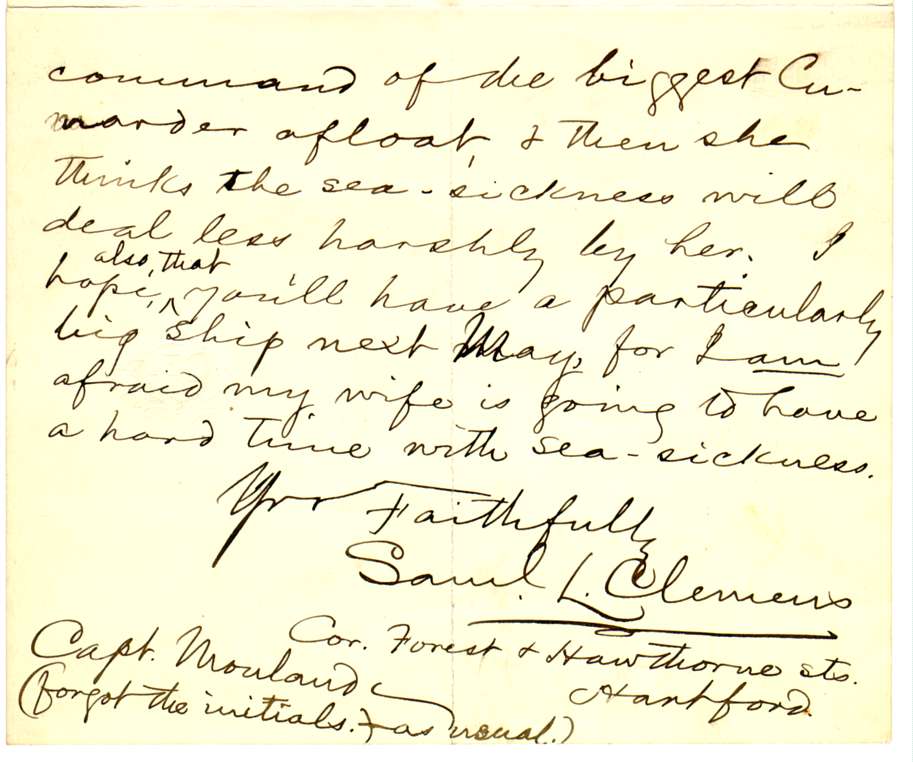 command of the biggest Cu-
narder afloat, & then she
thinks the sea-sickness will
deal less harshly by her. I
also, that
hope, ^ you'll have a particularly
big ship next May, for I am
afraid my wife is going to have
a hard time with sea-sickness.
Yrs Faithfully
Saml. L. Clemens
Cor. Forest & Hawthorne sts.
Hartford.
Capt. Mouland
(forgot the initials.) – as usual.)